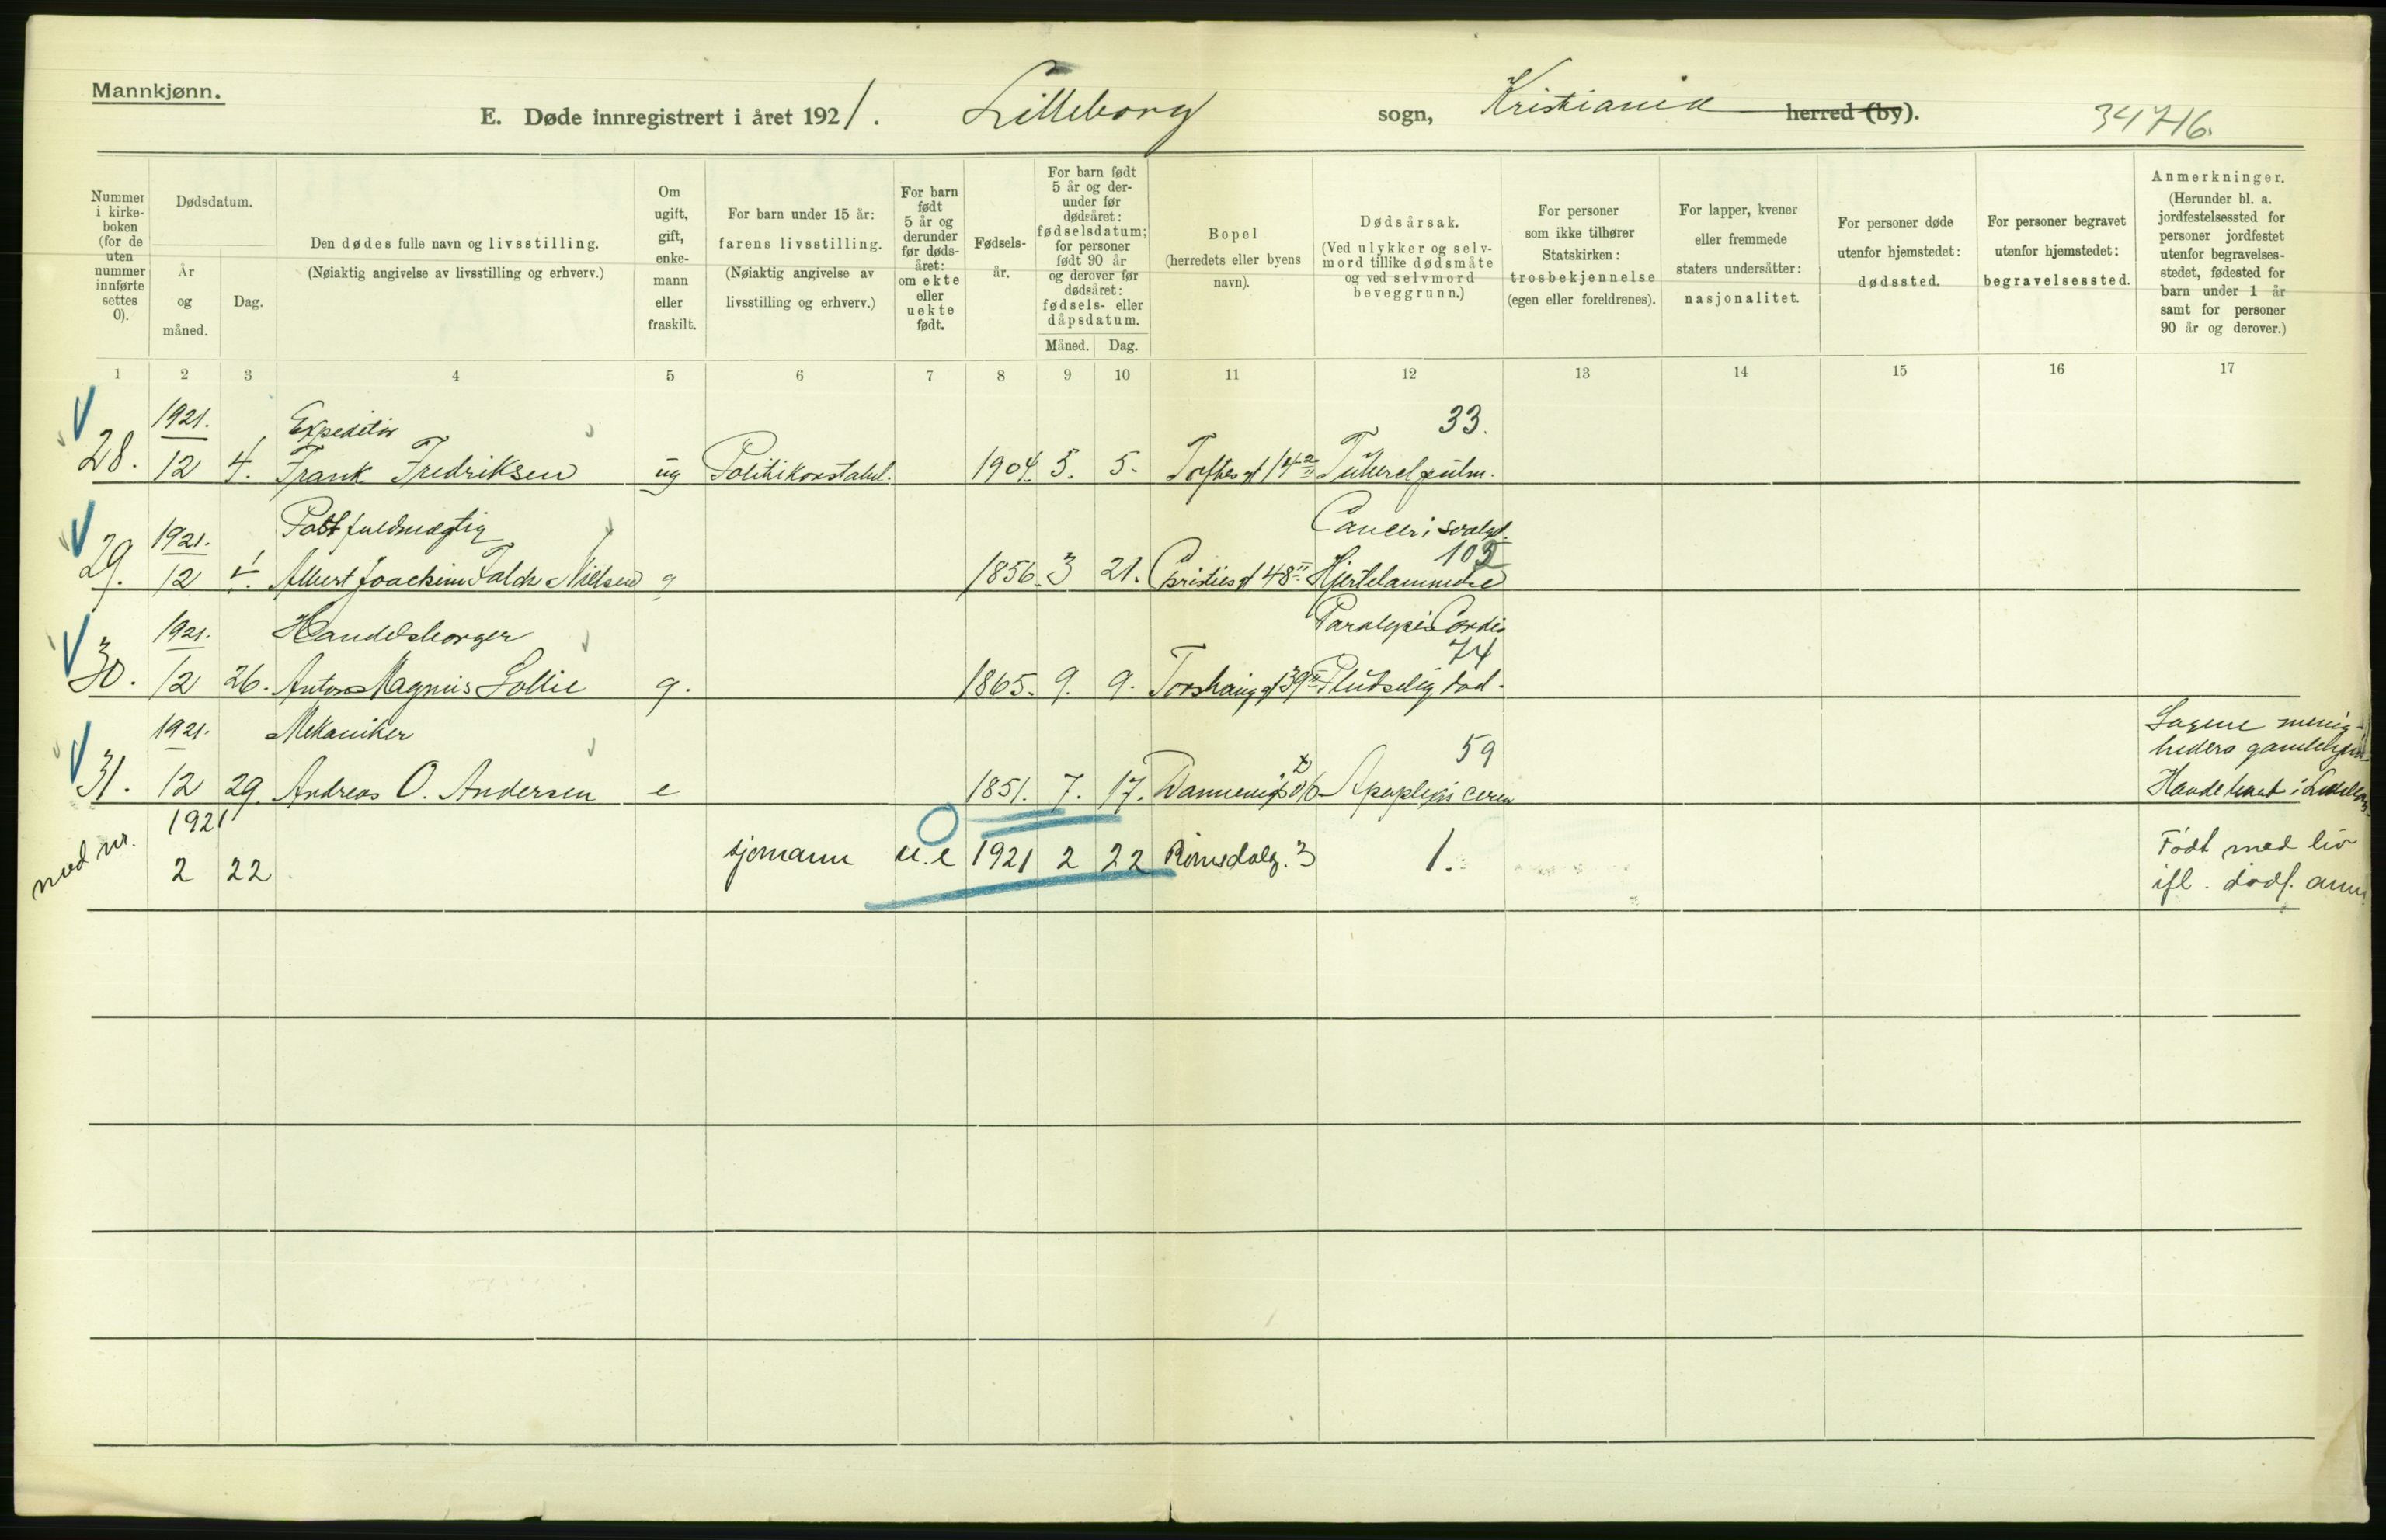 Mannkjønn.
E. Døde innregistrert i året 1921. Lilleborg sogn, Kristiania herred (by).
34716.
Nummer i kirke-boken (for de uten nummer innførte settes 0).
Dødsdatum.
År og måned.
Dag.
Den dødes fulle navn og livsstilling.
(Nøiaktig angivelse av livsstilling og erhverv.)
Om ugift, gift, enke-mann eller fraskilt.
For barn under 15 år: farens livsstilling.
(Nøiaktig angivelse av livsstilling og erhverv.)
For barn født 5 år og derunder før døds-året: om ekte eller uekte født.
Fødsels-år.
For barn født 5 år og der-under før dødsåret: fødselsdatum; for personer født 90 år og derover før dødsåret: fødsels- eller dåpsdatum.
Måned. Dag.
Bopel
(herredets eller byens navn).
Dødsårsak.
(Ved ulykker og selv-mord tillike dødsmåte og ved selvmord beveggrunn.)
For personer som ikke tilhører Statskirken: trosbekjennelse (egen eller foreldrenes).
For lapper, kvener eller fremmede staters undersåtter: nasjonalitet.
For personer døde utenfor hjemstedet: dødssted.
For personer begravet utenfor hjemstedet: begravelsessted.
Anmerkninger.
(Herunder bl. a. jordfestelsessted for personer jordfestet utenfor begravelses-stedet, fødested for barn under 1 år samt for personer 90 år og derover.)
1 2 3 4 5 6 7 8 9 10 11 12 13 14 15 16 17
1921. Expeditør 33.
28. 12 4. Frank Fredriksen ug Politikonstabel. 1904. 5. 5. Toftes gt 14 Tubercl pulm.
1921. Postfuldmægtig Cancer i
103
29. 12 Albert Joachim Falch Nielsen g 1856. 3 21. Christies gt 48 II Hjertelammelse
1921. Handelsborger Paralysis Cordis
74
30. 12 26. Anton Magnus Sollie g. 1865. 9. 9. Torshaug gt 39 II Pludselig død.
1921. Mekaniker 59 Sagene menig-
heders gamlehjem
31. 12 29. Andreas O. Andersen e 1851. 7. 17. Apoplexis cereb
1921
ued nr. 2 22 sjømann u.e 1921 2 22 Romsdalg. 3 1. Født med liv
ifl. dødf. anm